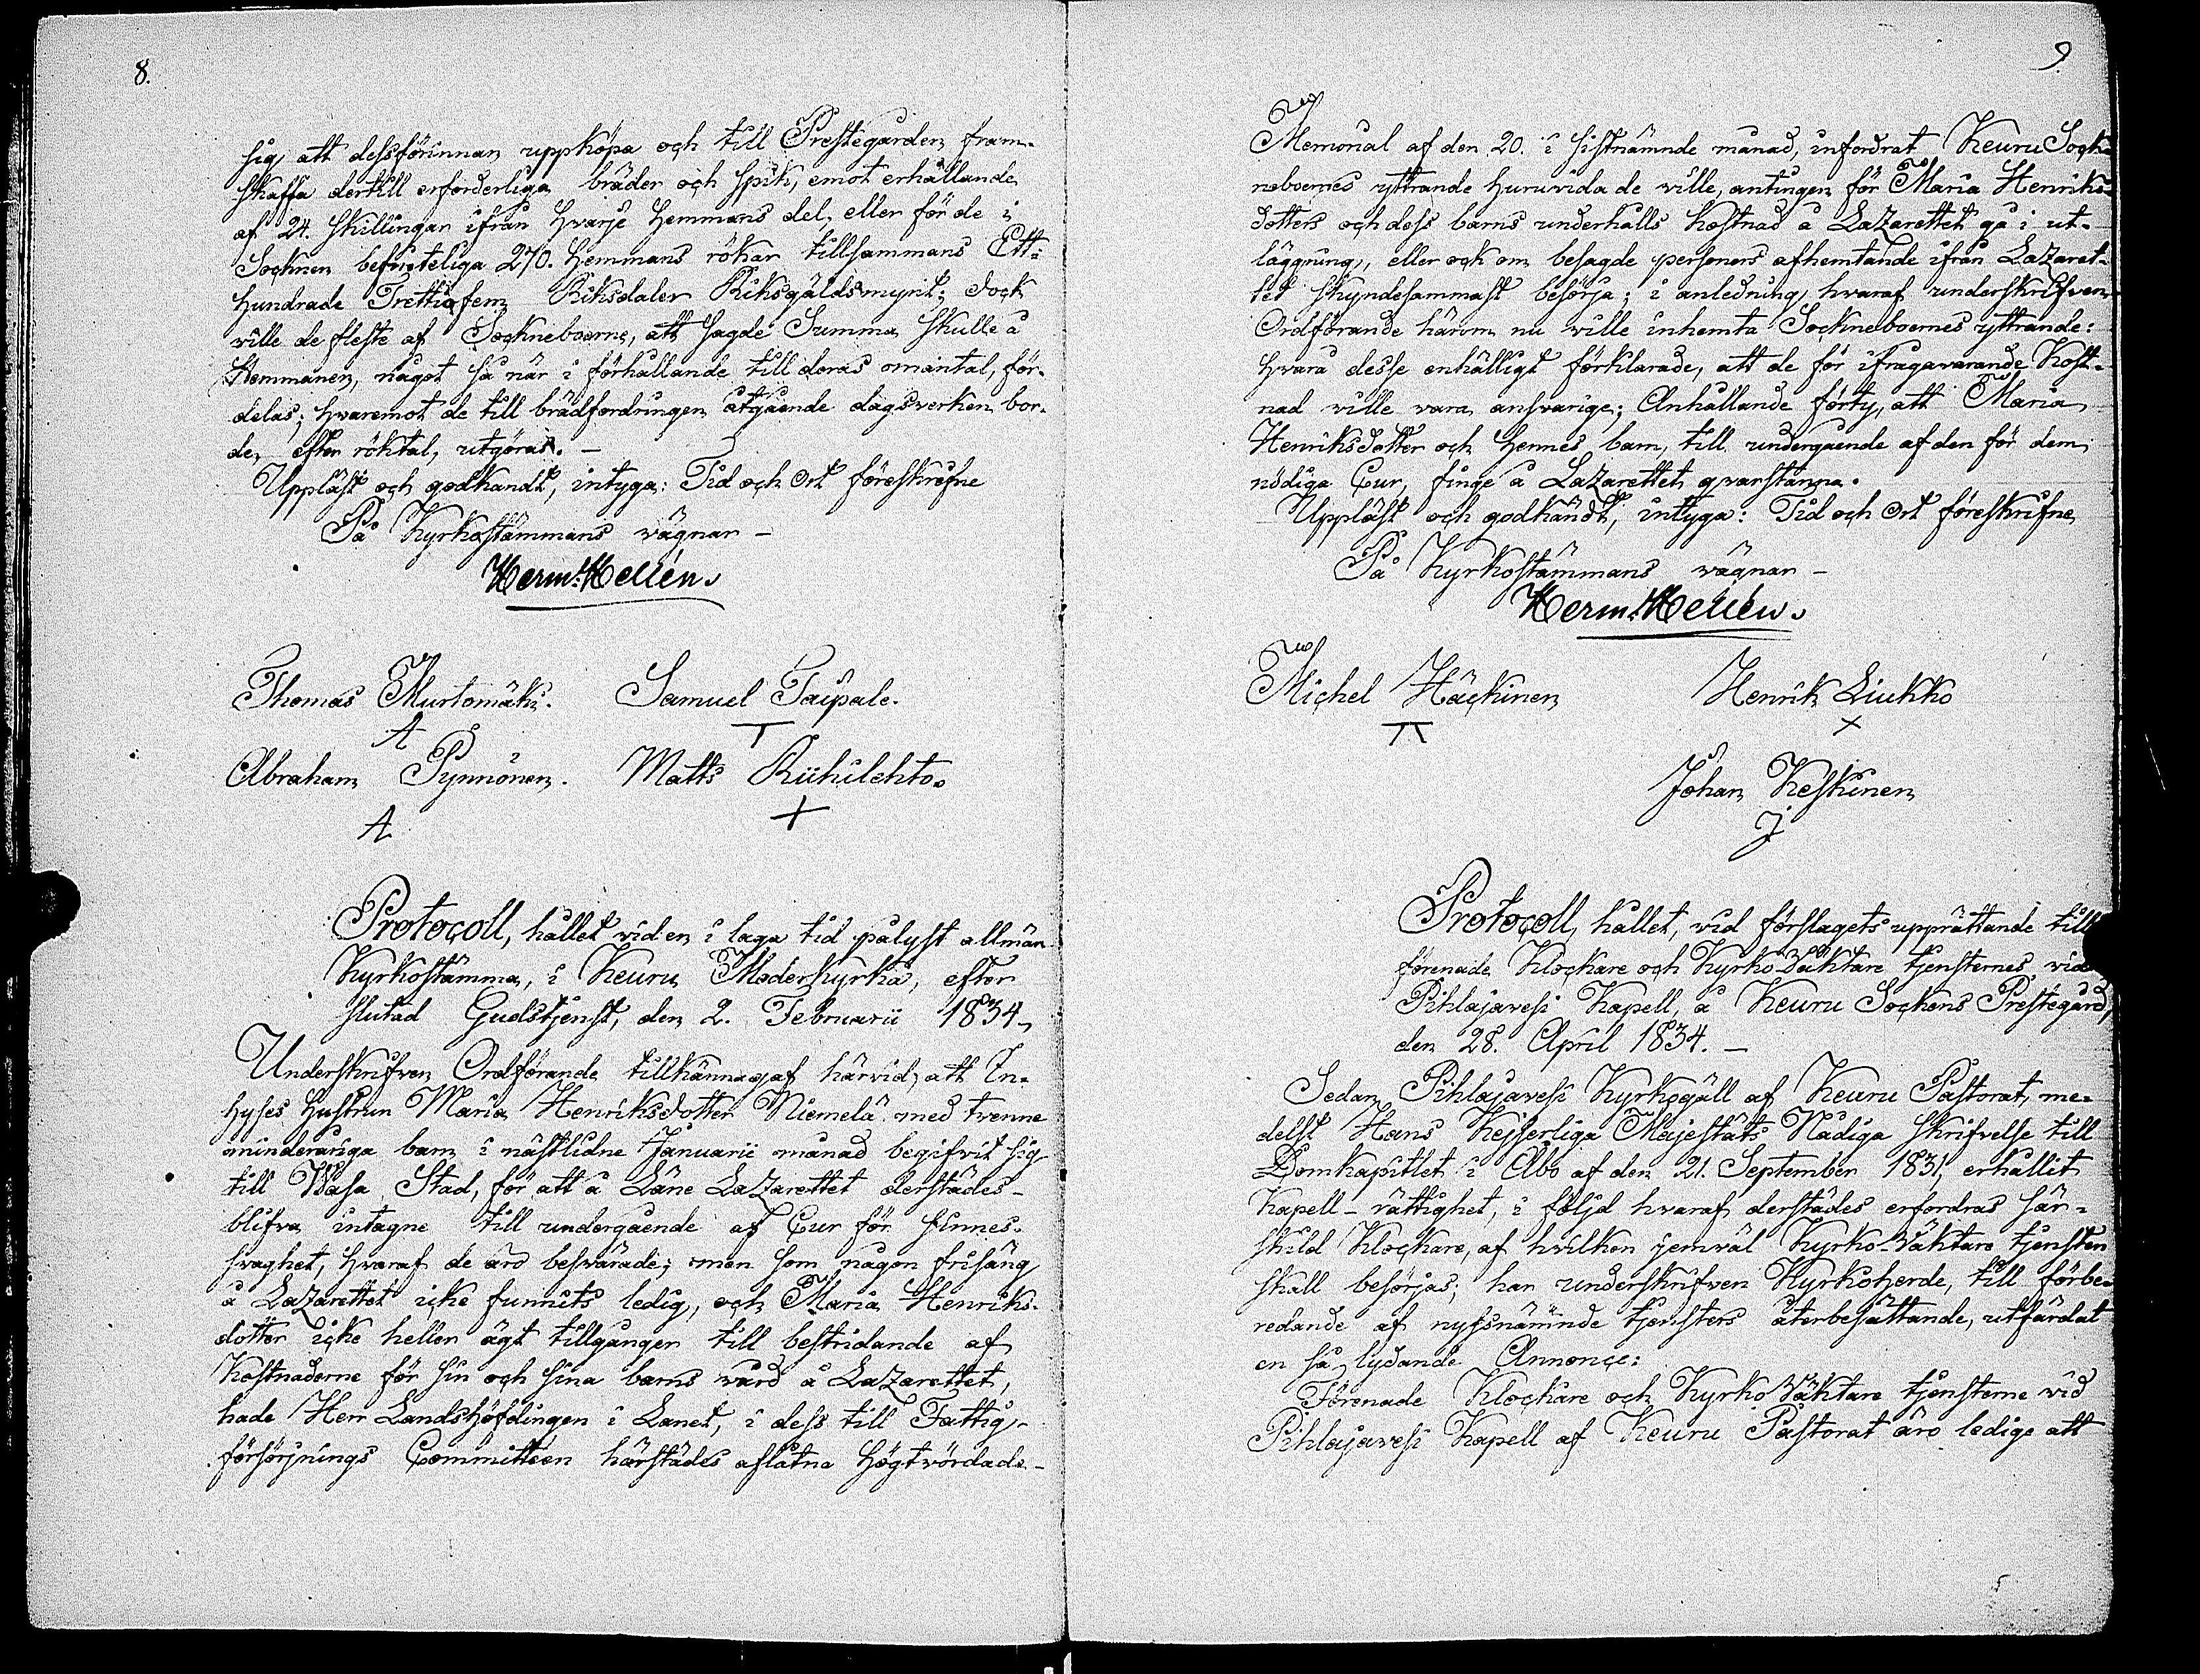 8.
sig att dessförinnan uppköpa och till Prestegården fram-
skaffa dertill erforderliga bräder och spik, emot erhållande
af 24. skillingar ifrån hvarje Hemmans del, eller för de i
Socknen befinteliga 270. Hemmans rökar tillsammans Ett-
hundrade Trettiofem Riksdaler Riksgäldsmynt; dock
ville de fleste af Sockneboerne, att sagde Summa skulle å
Hemmanen, något så när i förhållande till deras omantal, för-
delas; hvaremot de till brädfordringen åtgående dagsverken bor-
de, efter röktal, utgöras. -
Uppläst och godkandt, intyga: Tid och Ort föreskrefne
På Kyrkostämmans vägnar -
Herm: Hellén.
Thomas Murtomäki. Samuel Taipale.
A T
Abraham Pynnönen. Matts Riihilehto.
A +
Protocoll, hållet vid en i laga tid pålyst allmän
Kyrkostämma, i Keuru Moderkyrka, efter
slutad Gudstjenst, den 2. Februarii 1834.
Underskrifven Ordförande tillkännagaf härvid, att In-
hyses hustrun Maria Henriksdotter Niemelä med trenne
minderåriga barn i nästlidne Januarii månad begifvit sig
till Wasa Stad, för att å Läne Lazarettet derstädes
blifva intagne till undergående af Cur för sinnes-
svaghet, hvaraf de äro besvärade; men som någon frisäng
å Lazarettet icke funnits ledig, och Maria Henriks-
dotter icke heller ägt tillgånger till bestridande af
Kostnaderne för sin och sina barns vård å Lazarettet,
hade Herr Landshöfdingen i Länet, i dess till Fattig-
försörjnings Committéen härstädes aflåtna högtvördade
9.
Memorial af den 20. i sistnämnde månad, infordrat Keuru Sock-
neboernes yttrande huruvida de ville, antingen för Maria Henriks-
dotters och dess barns underhålls kostnad å Lazarettet gå i ut-
läggning, eller och om besagde personers afhemtande ifrån Lazaret-
tet skyndesammast besörja; i anledning hvaraf underskrifven
Ordförande härom nu ville inhemta Sockneboernes yttrande:
hvara desse enhälligt förklarade, att de för ifrågavarande Kost-
nad ville vara ansvarige; Anhållande förty, att Maria
Henriksdotter och hennes barn, till undergående af den för dem
nödiga Cur, finge å Lazarettet qvarstanna.
Uppläst och godkändt, intyga: Tid och Ort föreskrifne
På Kyrkostämmans vägnar -
Herm: Hellén.
Michel Häckinen Henrik Liukko
+
Johan Keskinen
J
Protocoll, hållet, vid förslagets upprättande till
förenade Klockare och Kyrko-Väktare tjensternes vid
Pihlajavesi Kapell, å Keuru Sockens Prestegård,
den 28. April 1834. -
Sedan Pihlajavesi Kyrkogäll af Keuru Pastorat, me-
delst Hans Kejserliga Majestäts Nådiga skrifvelse till
Domkapitlet i Åbo af den 21. September 1831, erhållit
Kapell-rättighet, i följd hvaraf derstädes erfordras sär-
skild Klockare, af hvilken jemväl Kyrko-Väktare tjensten
skall besörjas; har underskrifven Kyrkoherde, till förbe-
redande af nyssnämnde tjensters återbesättande, utfärdat
en så lydande Annonçe:
Förenade Klockare och Kyrko Väktare tjensterne vid
Pihlajavesi Kapell af Keuru Pastorat äro ledige att